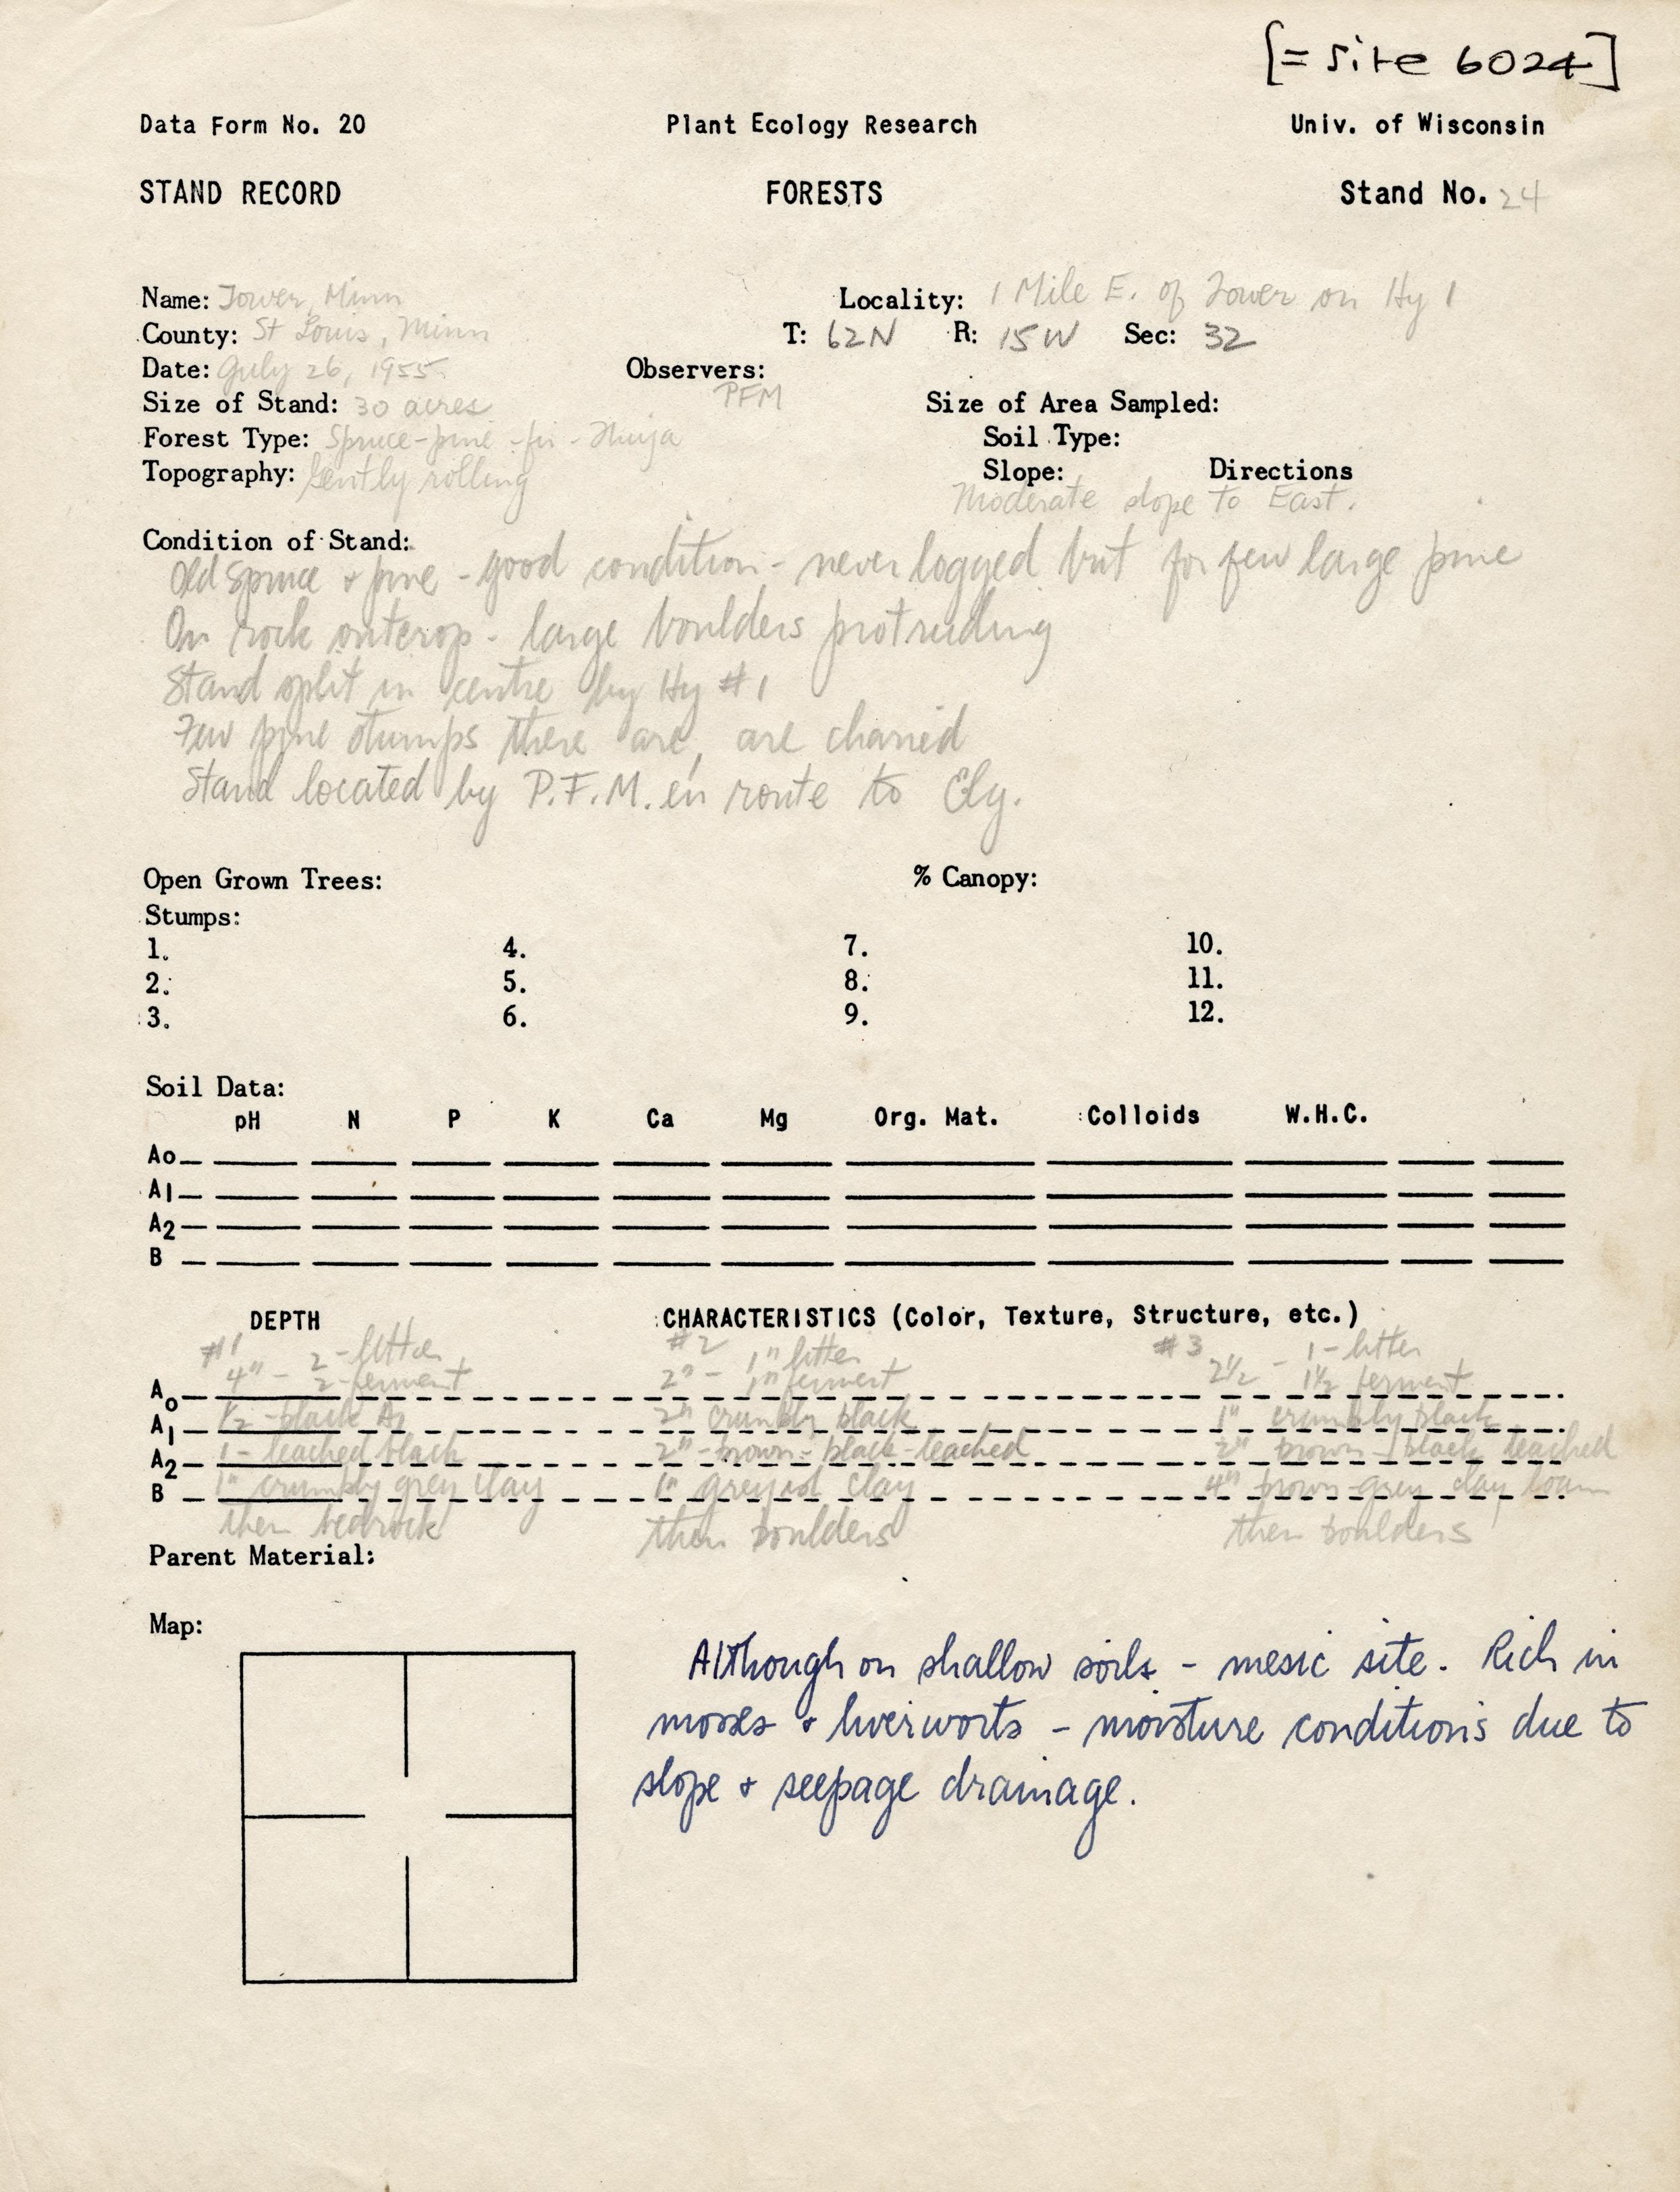 [= site 6024]
Data Form No. 20 Plant Ecology Research Univ. of Wisconsin
STAND RECORD FORESTS Stand No. 24
Name: Tower, Minn Locality: 1 Mile E. of Tower on Hy 1
County: St Louis, Minn T: 62N R: 15W Sec: 32
Date: July 26, 1955 Observers:
Size of Stand: 30 acres PFM Size of Area Sampled:
Forest Type: Spruce-pine-fir-Thuja Soil Type:
Topography: Gently rolling Slope: Directions
Moderate slope to East.
Condition of Stand:
Old Spruce & pine - good condition - never logged but for few large pine
On rock outcrop - large boulders protruding
Stand split in centre by Hy #1
Few pine stumps there are, are charred
Stand located by P.F.M. en route to Ely.
Open Grown Trees: % Canopy:
Stumps:
1. 4. 7. 10.
2. 5. 8. 11.
3. 6. 9. 12.
Soil Data:
pH N P K Ca Mg Org. Mat. Colloids W.H.C.
Ao
A1
A2
B
DEPTH CHARACTERISTICS (Color, Texture, Structure, etc.)
#1 2-litter #2 1" litter #3 1-litter
4" - 2-ferment 2" - 1" ferment 2½ - 1½ ferment
Ao
A1 ½-black A1 2" crumbly black 1" crumbly black
A2 1-leached black 2"-brown-black-leached 2" brown-black leached
B 1" crumbly grey clay 1" greyish clay 4" brown-grey clay loam
then bedrock then boulders then boulders
Parent Material:
Map:
Although on shallow soils - mesic site. Rich in
mosses & liverworts - moisture conditions due to
slope & seepage drainage.